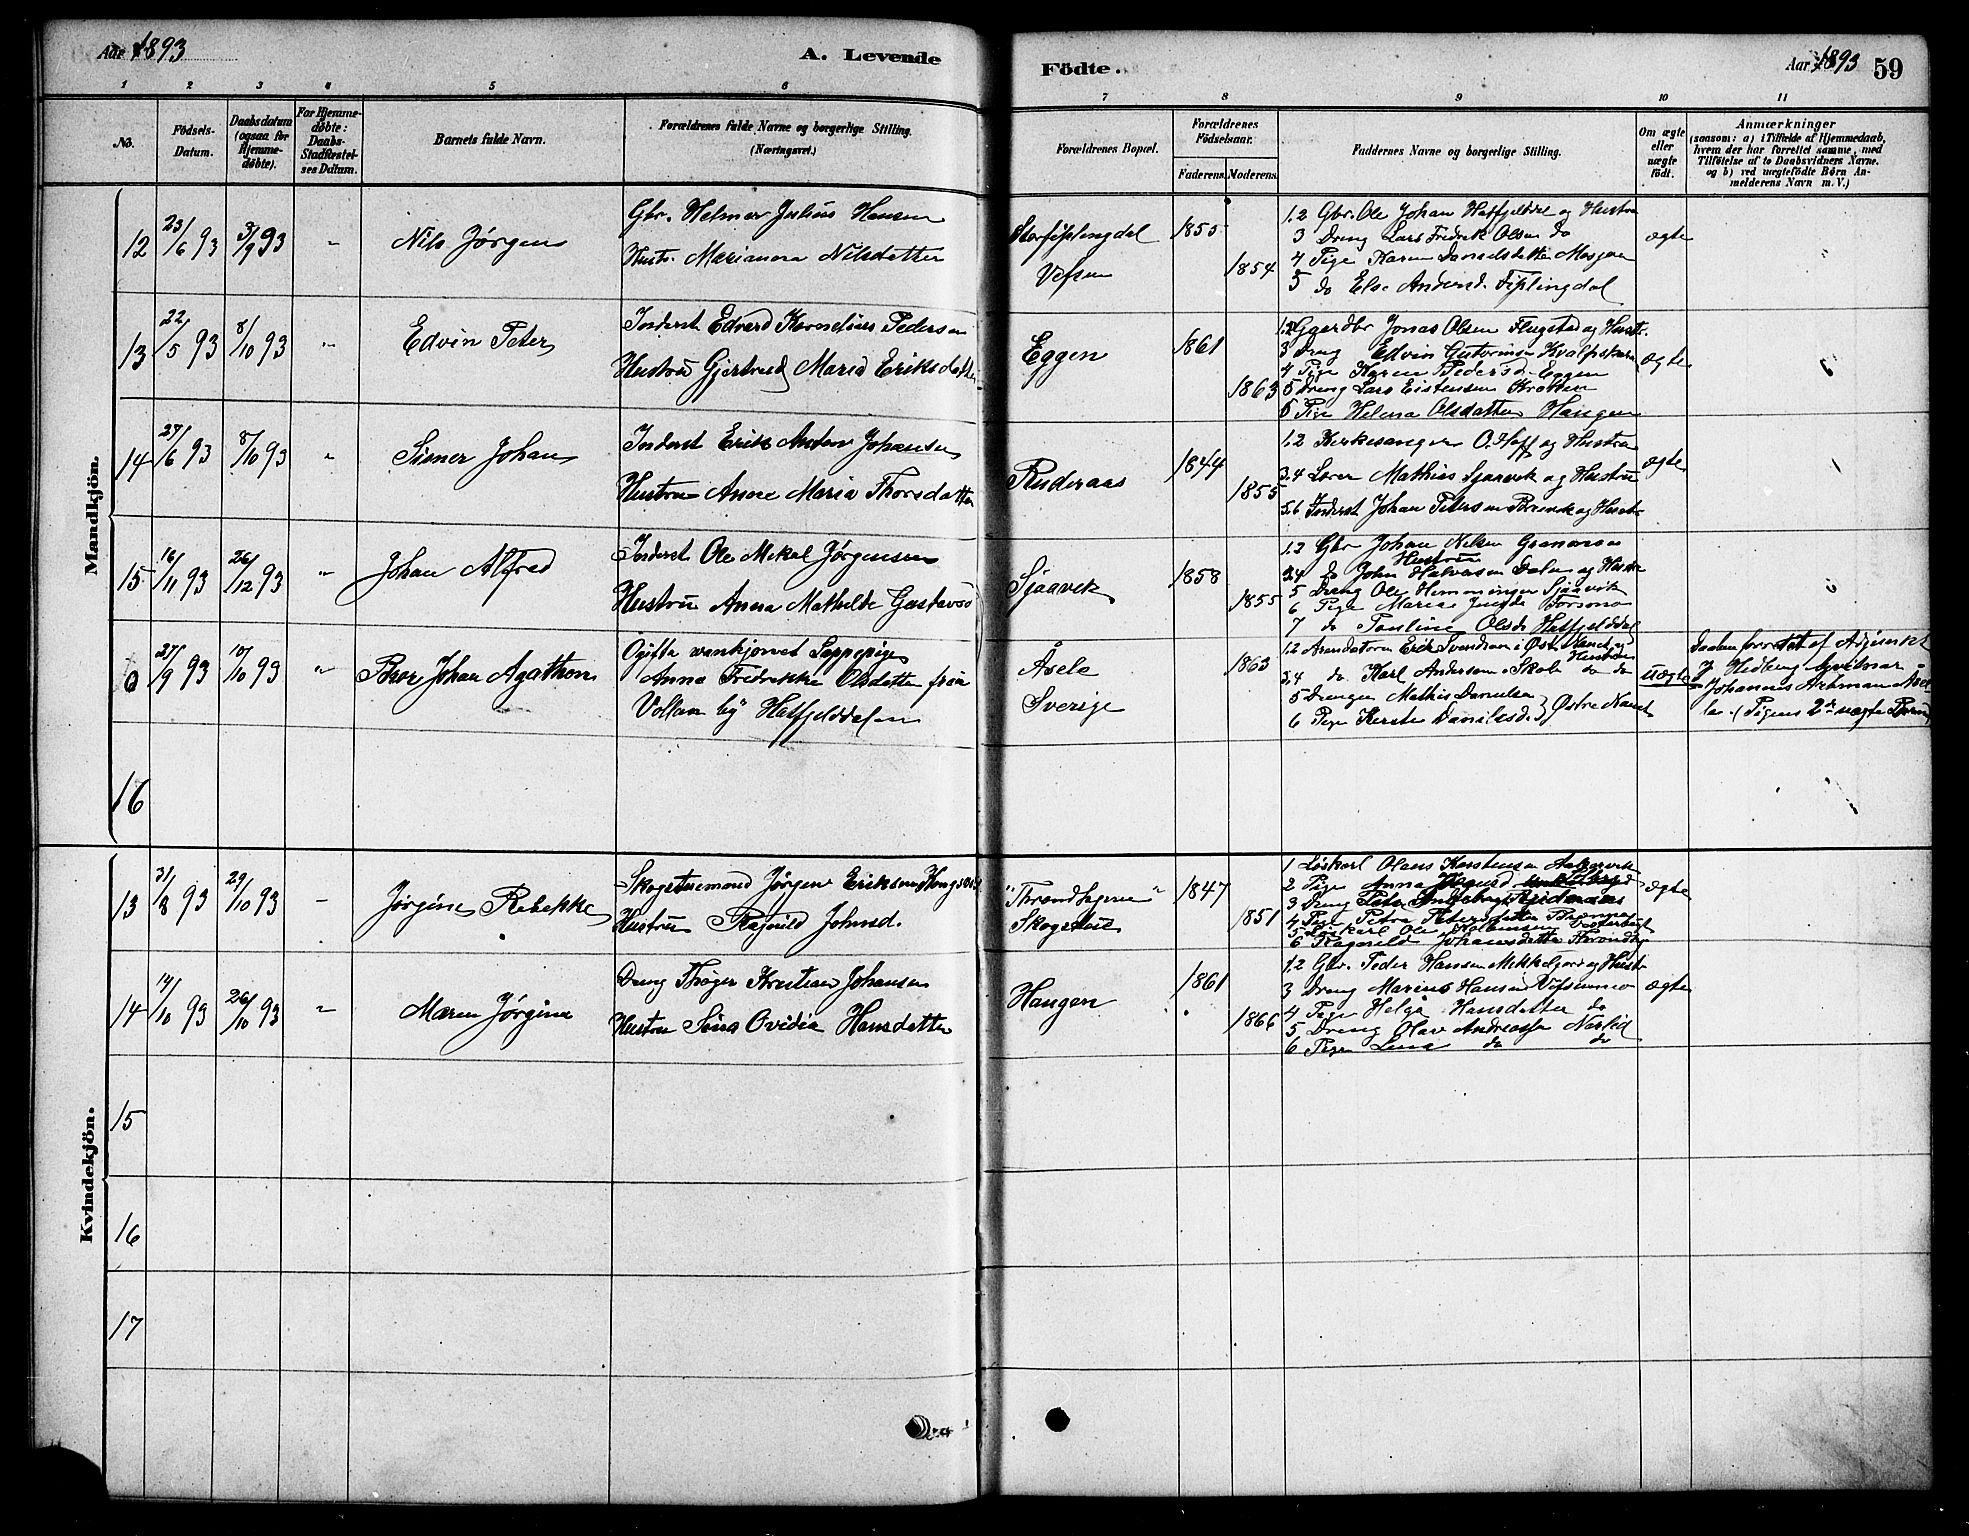 Aar 1893
A. Levende
Födte.
Aar 1893 59
1 2 3 4 5 6 7 8 9 10 11
No.
Födsels-
Datum.
Daabsdatum
(ogsaa for
Hjemme-
døbte).
For Hjemme-
døbte:
Daabs-
Stadfæstel-
ses Datum.
Barnets fulde Navn.
Forældrenes fulde Navne og borgerlige Stilling.
(Næringsvei.)
Forældrenes Bopæl.
Forældrenes
Födselsaar.
Faderens. Moderens.
Faddernes Navne og borgerlige Stilling.
Om ægte
eller
uægte
født.
Anmærkninger
(saasom: a) i Tilfælde af Hjemmedaab,
hvem der har forrettet samme, med
Tilföielse af to Daabsvidners Navne.
og b) ved uægtefödte Børn An-
melderens Navn m. V.)
Mandkjön.
12 23/6 93 3/9 93 " Nils Jørgen
Gbr. Helmer Julius Hansen
Hustr. Marianna Nilsdatter
Storfiplingdal
Vefsen
1855
1854
1.2 Gbr. Ole Johan Hatfjeldal og Hustru
3 Dreng Lars Fredrik Olsen do
4 Pige Karen Danielsdatter Mosjøen
5 do Else Andersd. Fiplingdal
ægte
13 22/5 93 8/10 93 " Edvin Peter
Inderst Edvard Kornelius Pedersen
Hustru Gjertrud Maria Eriksdatter
Eggen
1861
1863
1.2 Gaardbr Jonas Olsen Flugstad og Hustr.
3 Dreng Edvin
4 Pige Karen Pedersd. Eggen
5 Dreng Lars Eistensen Kroken
6 Pige Helena Olsdatter Haugen
ægte
14 27/6 93 8/10 93 " Johan
Inderst Erik Anton Johansen
Hustru Anne Maria Thorsdatter
Ruderaas
1844
1855
1.2 Kirkesanger O. Hoff og Hustru
3.4 Lærer Mathias Sjaavik og Hustru
5.6 Inderst Johan Petersen Brenek og Hustr
ægte
15 16/11 93 26/12 93 " Johan Alfred
Inderst Ole Mekal Jørgensen
Hustru Anna Mathilde Gustavsd
Sjaavik
1858
1855
1.2 Gbr Johan Nilsen Granmoen
Hustru
3.4 do John Halvorsen Dalen og Hustr
5 Dreng Ole Hemmingsen Sjaavik
6 Pige Maria
7 do Pauline Olsd. Hatfjelddal
27/9 93 10/10 93 " Bror Johan Agathon
Ogifta Lappepigen
Anna Fredrikke Olsdatter från
Vollan by Hatfjelddalen
Åsele
Sverige
1863
1.2 Arendatorn Erik Svendsen i Østr. og
Hustru
3.4 do Karl Andersen Skob do do
5 Drengen Mathis Danielsen
6 Pige Kerste Danielsd. Østre
uægte
Daaben forrettet af Adjunkt
J Hedberg
Johannes Arhman
(Pigens 2det uægte Barn)
16
Kvindekjön.
13 31/8 93 29/10 93 " Jørgine Rebekke
Skogstuemand Jørgen Eriksen
Hustru Ragnild Johnsd.
"
Skogstue
1847
1851
1 Løskarl Olaus Karstensen
2 Pige Anna
3 Dreng Peter
4 Pige Petra Petersdatter
5 Løskarl Ole
6 Ragnild Johansdatter
ægte
14 14/10 93 26/10 93 " Maren Jørgine
Dreng Thøger Kristian Johansen
Hustru Sina Ovidia Hansdatter
Haugen
1861
1866
1.2 Gbr. Peder Hansen Mikkeljord og Hustr
3 Dreng Marius Hansen Vefsenmo
4 Pige Helga Hansdatter do
5 Dreng Olav Andreassen Nerlid
6 Pige Lina do do
ægte
15
16
17